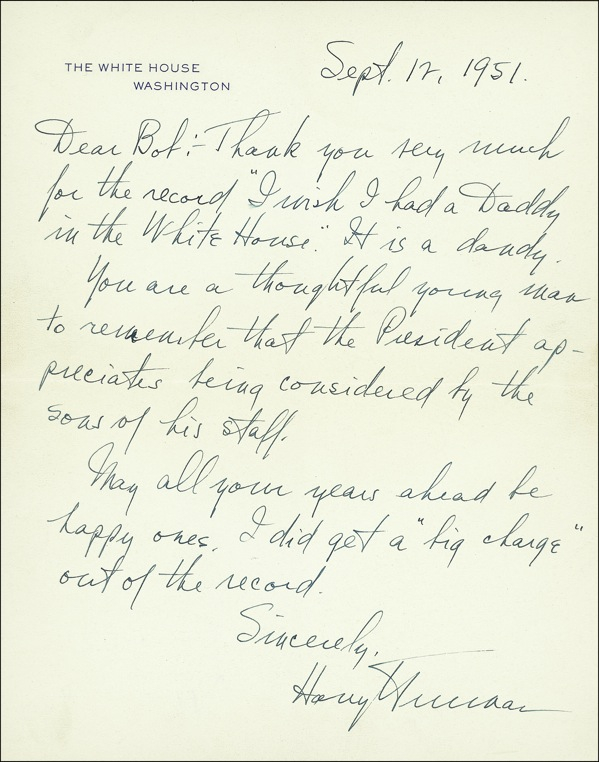 THE WHITE HOUSE
WASHINGTON
Sept. 12, 1951.
Dear Bob:- Thank you very much
for the record "I wish I had a Daddy
in the White House." It is a dandy.
You are a thoughtful young man
to remember that the President ap-
preciates being considered by the
sons of his staff.
May all your years ahead be
happy ones. I did get a "big charge"
out of the record.
Sincerely,
Harry Truman